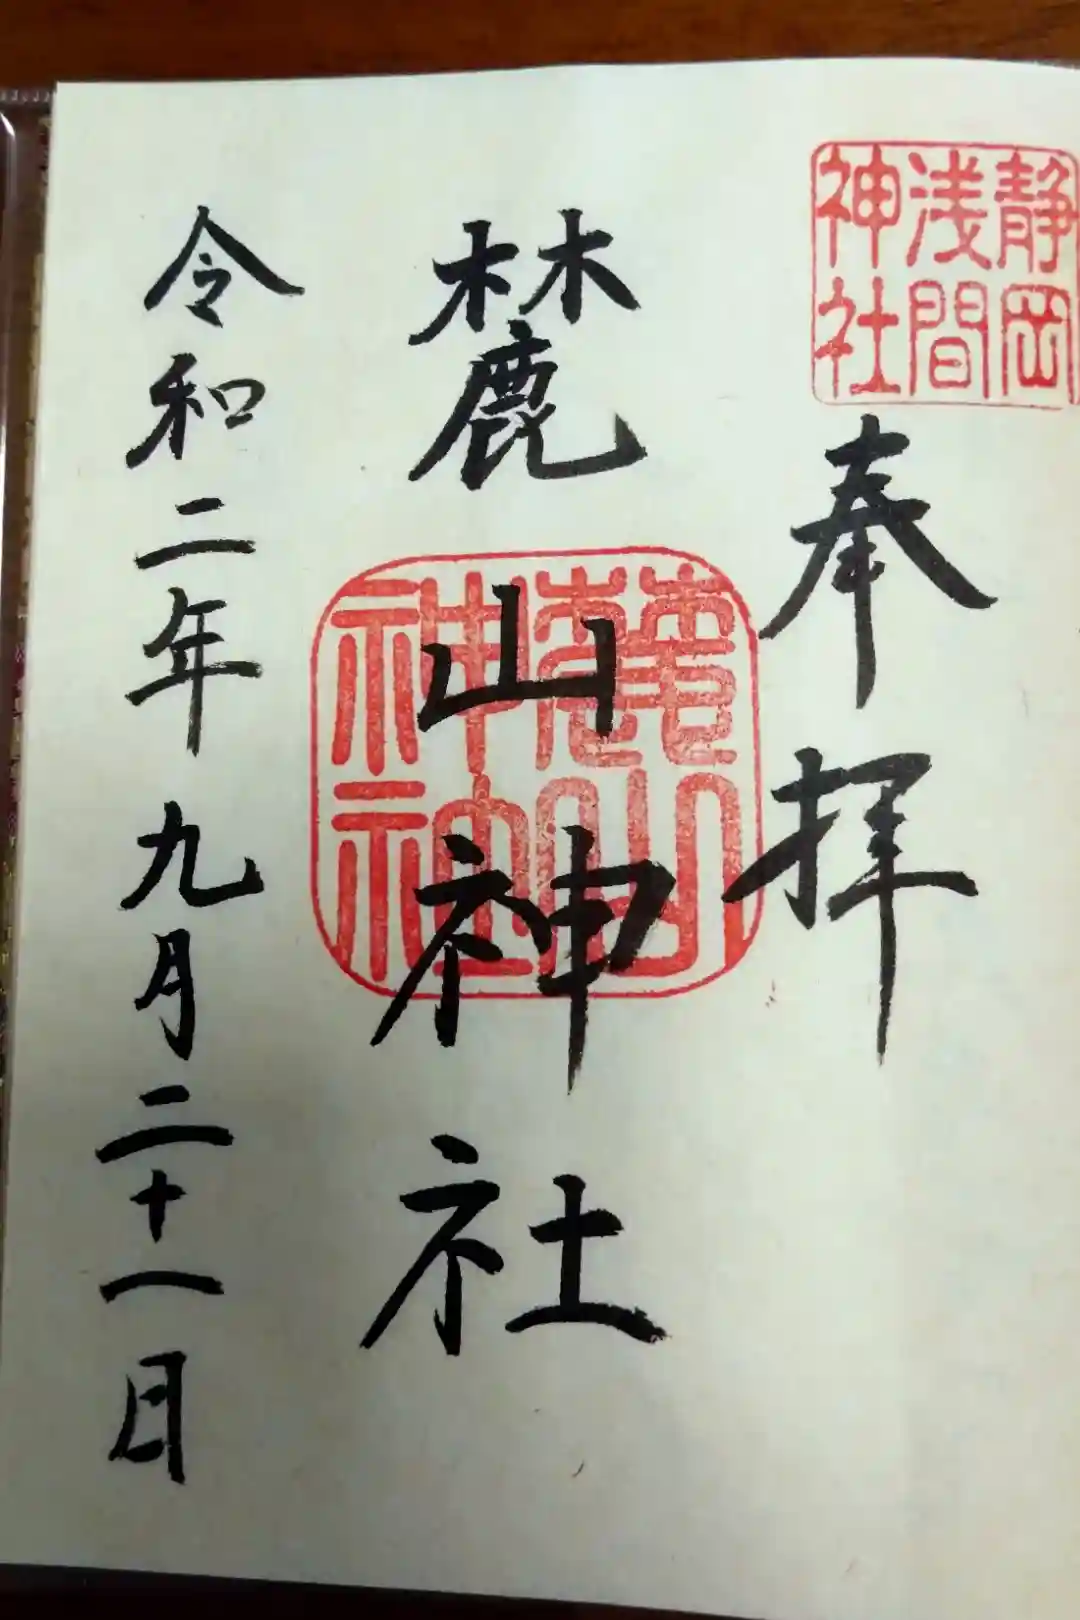 静岡
浅間
神社
奉拝
麓山神社
麓山
神社
令和二年九月二十一日